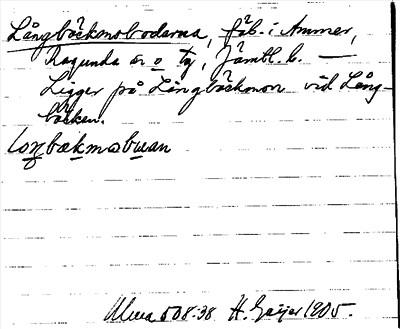 Långbäckmobodarna, fäb. i Ammer,
Ragunda sn o tg, Jämtl. l. —
Ligger på Långbäckmon vid Lång-
bäcken.
loŋbækmobuan
508:38 H. Geijer 1905.